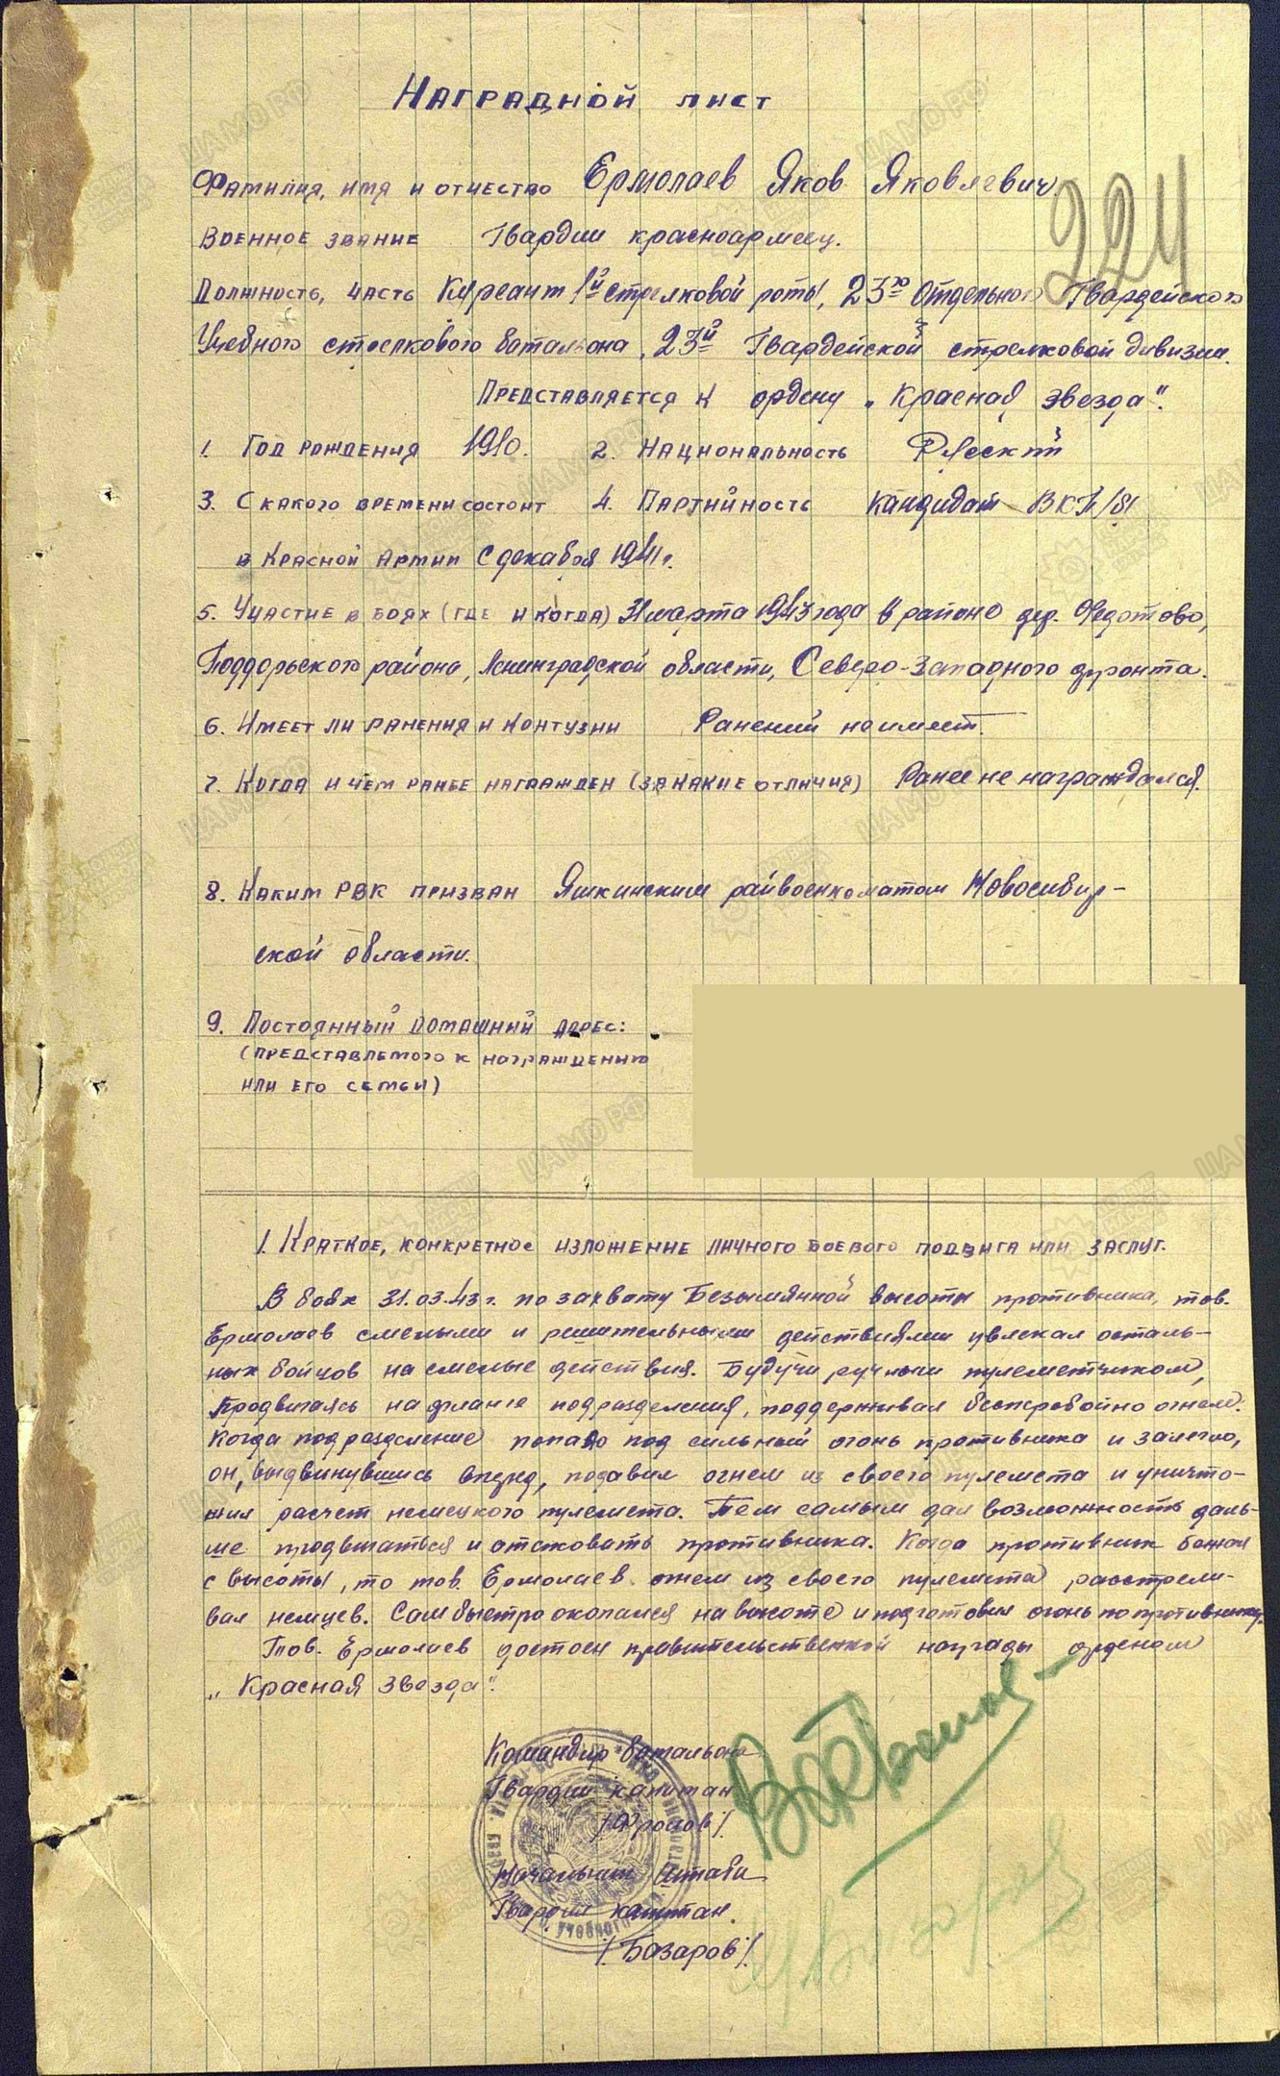 Наградной лист
224
Фамилия, имя и отчество Ермолаев Яков Яковлевич.
Военное звание Гвардии красноармеец.
Должность, часть Курсант 1й стрелковой роты, 23го Отдельного Гвардейского
Учебного стрелкового батальона, 23й Гвардейской стрелковой дивизии.
Представляется к ордену „Красная звезда".
1. Год рождения 1910. 2. Национальность Русский
3. С какого времени состоит 4. Партийность Кандидат ВКП/б/
в Красной Армии С декабря 1941 г.
5. Участие в боях (где и когда) 31 марта 1943 года в районе дер. Федотово,
Поддорьского района, Ленинградской области, Северо-Западного фронта.
6. Имеет ли ранения и контузии Ранений не имеет.
7. Когда и чем ранее награжден (за какие отличия) Ранее не награждался.
8. Каким РВК призван Яшкинским райвоенкоматом Новосибир-
ской области.
9. Постоянный домашний адрес:
(представляемого к награждению
или его семьи)
1. Краткое, конкретное изложение личного боевого подвига или заслуг.
В боях 31.03.43 г. по захвату Безымянной высоты противника, тов.
Ермолаев смелыми и решительными действиями увлекал осталь-
ных бойцов на смелые действия. Будучи ручным пулеметчиком,
продвигаясь на фланге подразделения, поддерживал бесперебойно огнем.
Когда подразделение попало под сильный огонь противника и залегло,
он, выдвинувшись вперед, подавил огнем из своего пулемета и уничто-
жил расчет немецкого пулемета. Тем самым дал возможность даль-
ше продвигаться и атаковать противника. Когда противник бежал
с высоты, то тов. Ермолаев огнем из своего пулемета расстрели-
вал немцев. Сам быстро окопался на высоте и подготовил огонь по противнику.
Тов. Ермолаев достоен правительственной награды орденом
„Красная Звезда".
Командир батальона
Гвардии капитан
/Фролов/
Начальник Штаба
Гвардии капитан.
/Базаров/